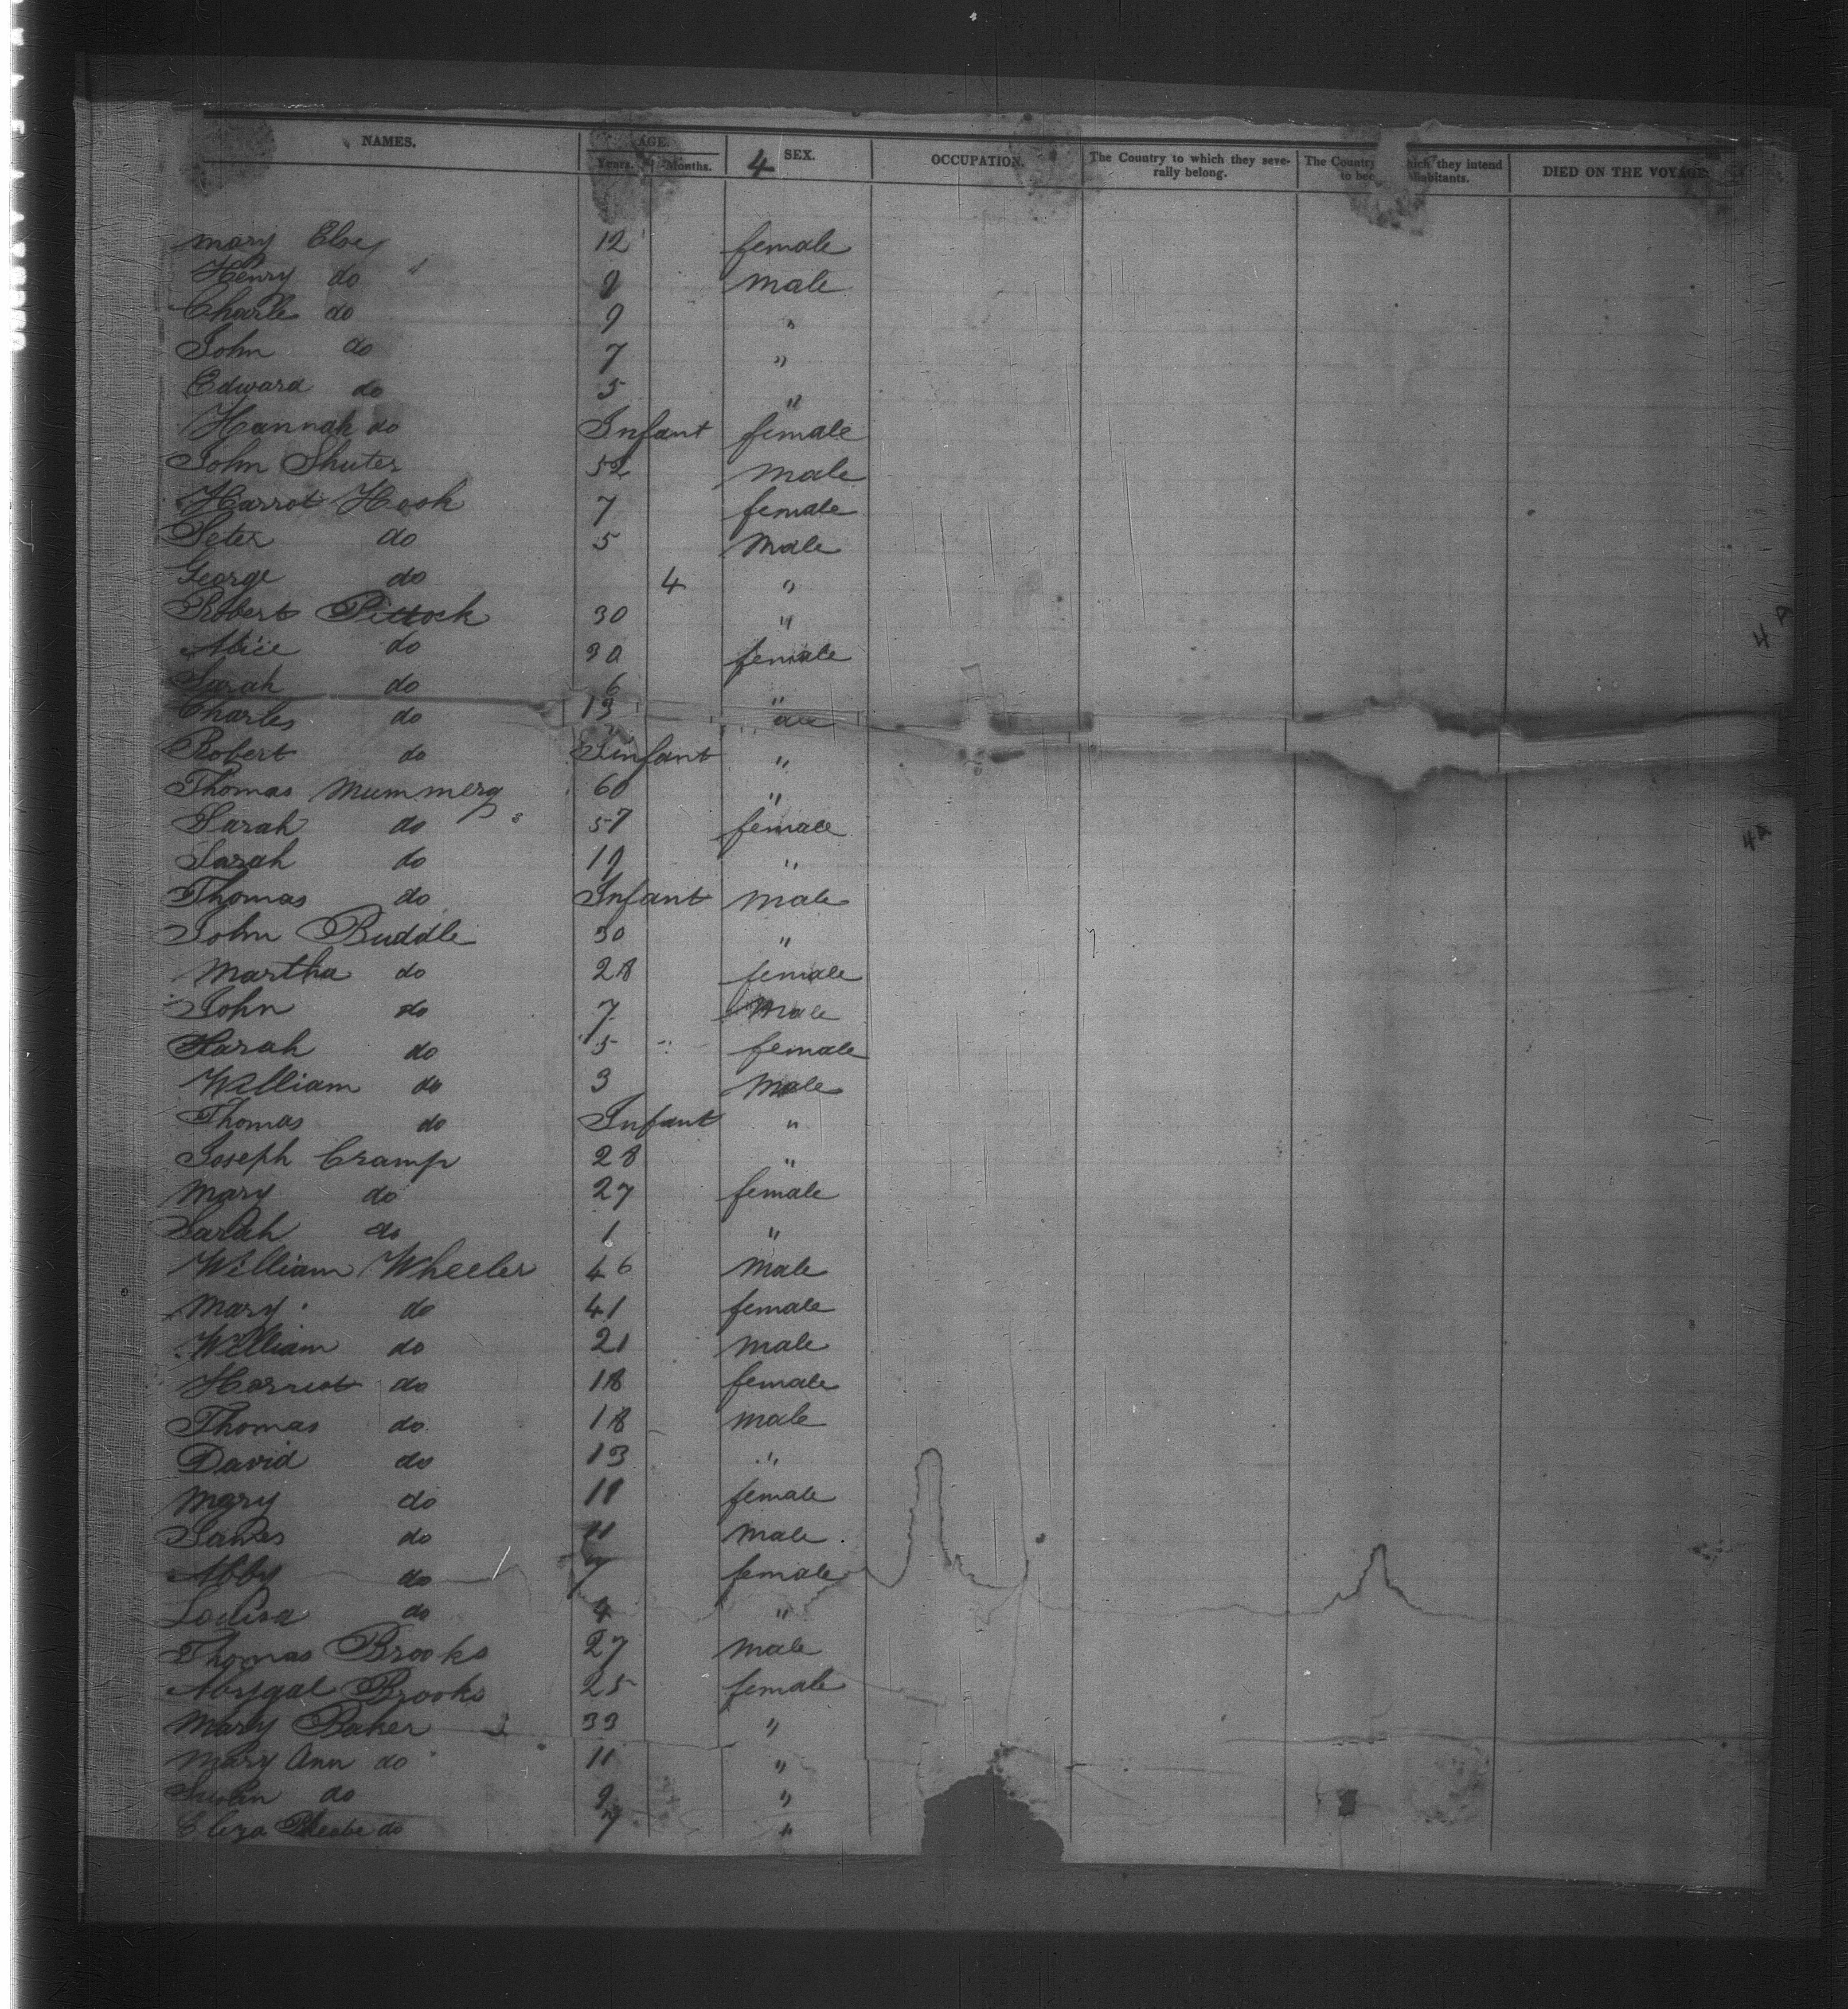 NAMES. AGE. SEX. OCCUPATION. The Country to which they seve- The Country which they intend DIED ON THE VOYAGE.
Years. Months. 4 rally belong. to inhabitants.
Mary 12 female
Henry do 9 male
Charle do 9 "
John do 7 "
Edward do 5 "
Hannah do Infant female
John Shuter 52 male
Harrot Hook 7 female
Peter do 5 Male
George do 4 "
Robert Pittock 30 "
Alice do 30 female
Sarah do 6 "
Charles do 13
Robert do Infant "
Thomas Mummery 60 "
Sarah do 57 female
Sarah do 19 "
Thomas do Infant male
John Buddle 30 "
Martha do 28 female
John do 7 Male
Sarah do 5 female
William do 3 Male
Thomas do Infant "
Joseph Cramp 28 "
Mary do 27 female
Sarah do 1 "
William Wheeler 46 Male
Mary do 41 female
William do 21 male
Harriot do 18 female
Thomas do 18 male
David do 13 "
Mary do 11 female
James do 11 male
Abby do 7 female
Louisa do 4 "
Thomas Brooks 27 male
Abygal Brooks 25 female
Mary Baker 33 "
Mary Ann do 11 "
do 9 "
Eliza Phebe do 7 "